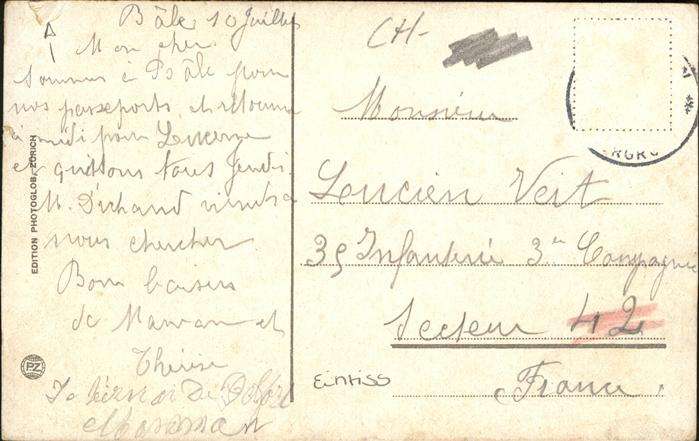 Bâle 10 Juillet
Mon cher
Sommes à Bâle pour
nos passeports, et retournons
à midi pour Lucerne
et quittons tous Jeudi.
M. Durhand viendra
nous chercher.
Bons baisers
de Maman et
Thérèse
EDITION PHOTOGLOB, ZÜRICH
PZ
CH-
Monsieur
Lucien Veit
35 Infanterie 3e Compagnie
Secteur 42
France.
Einriss